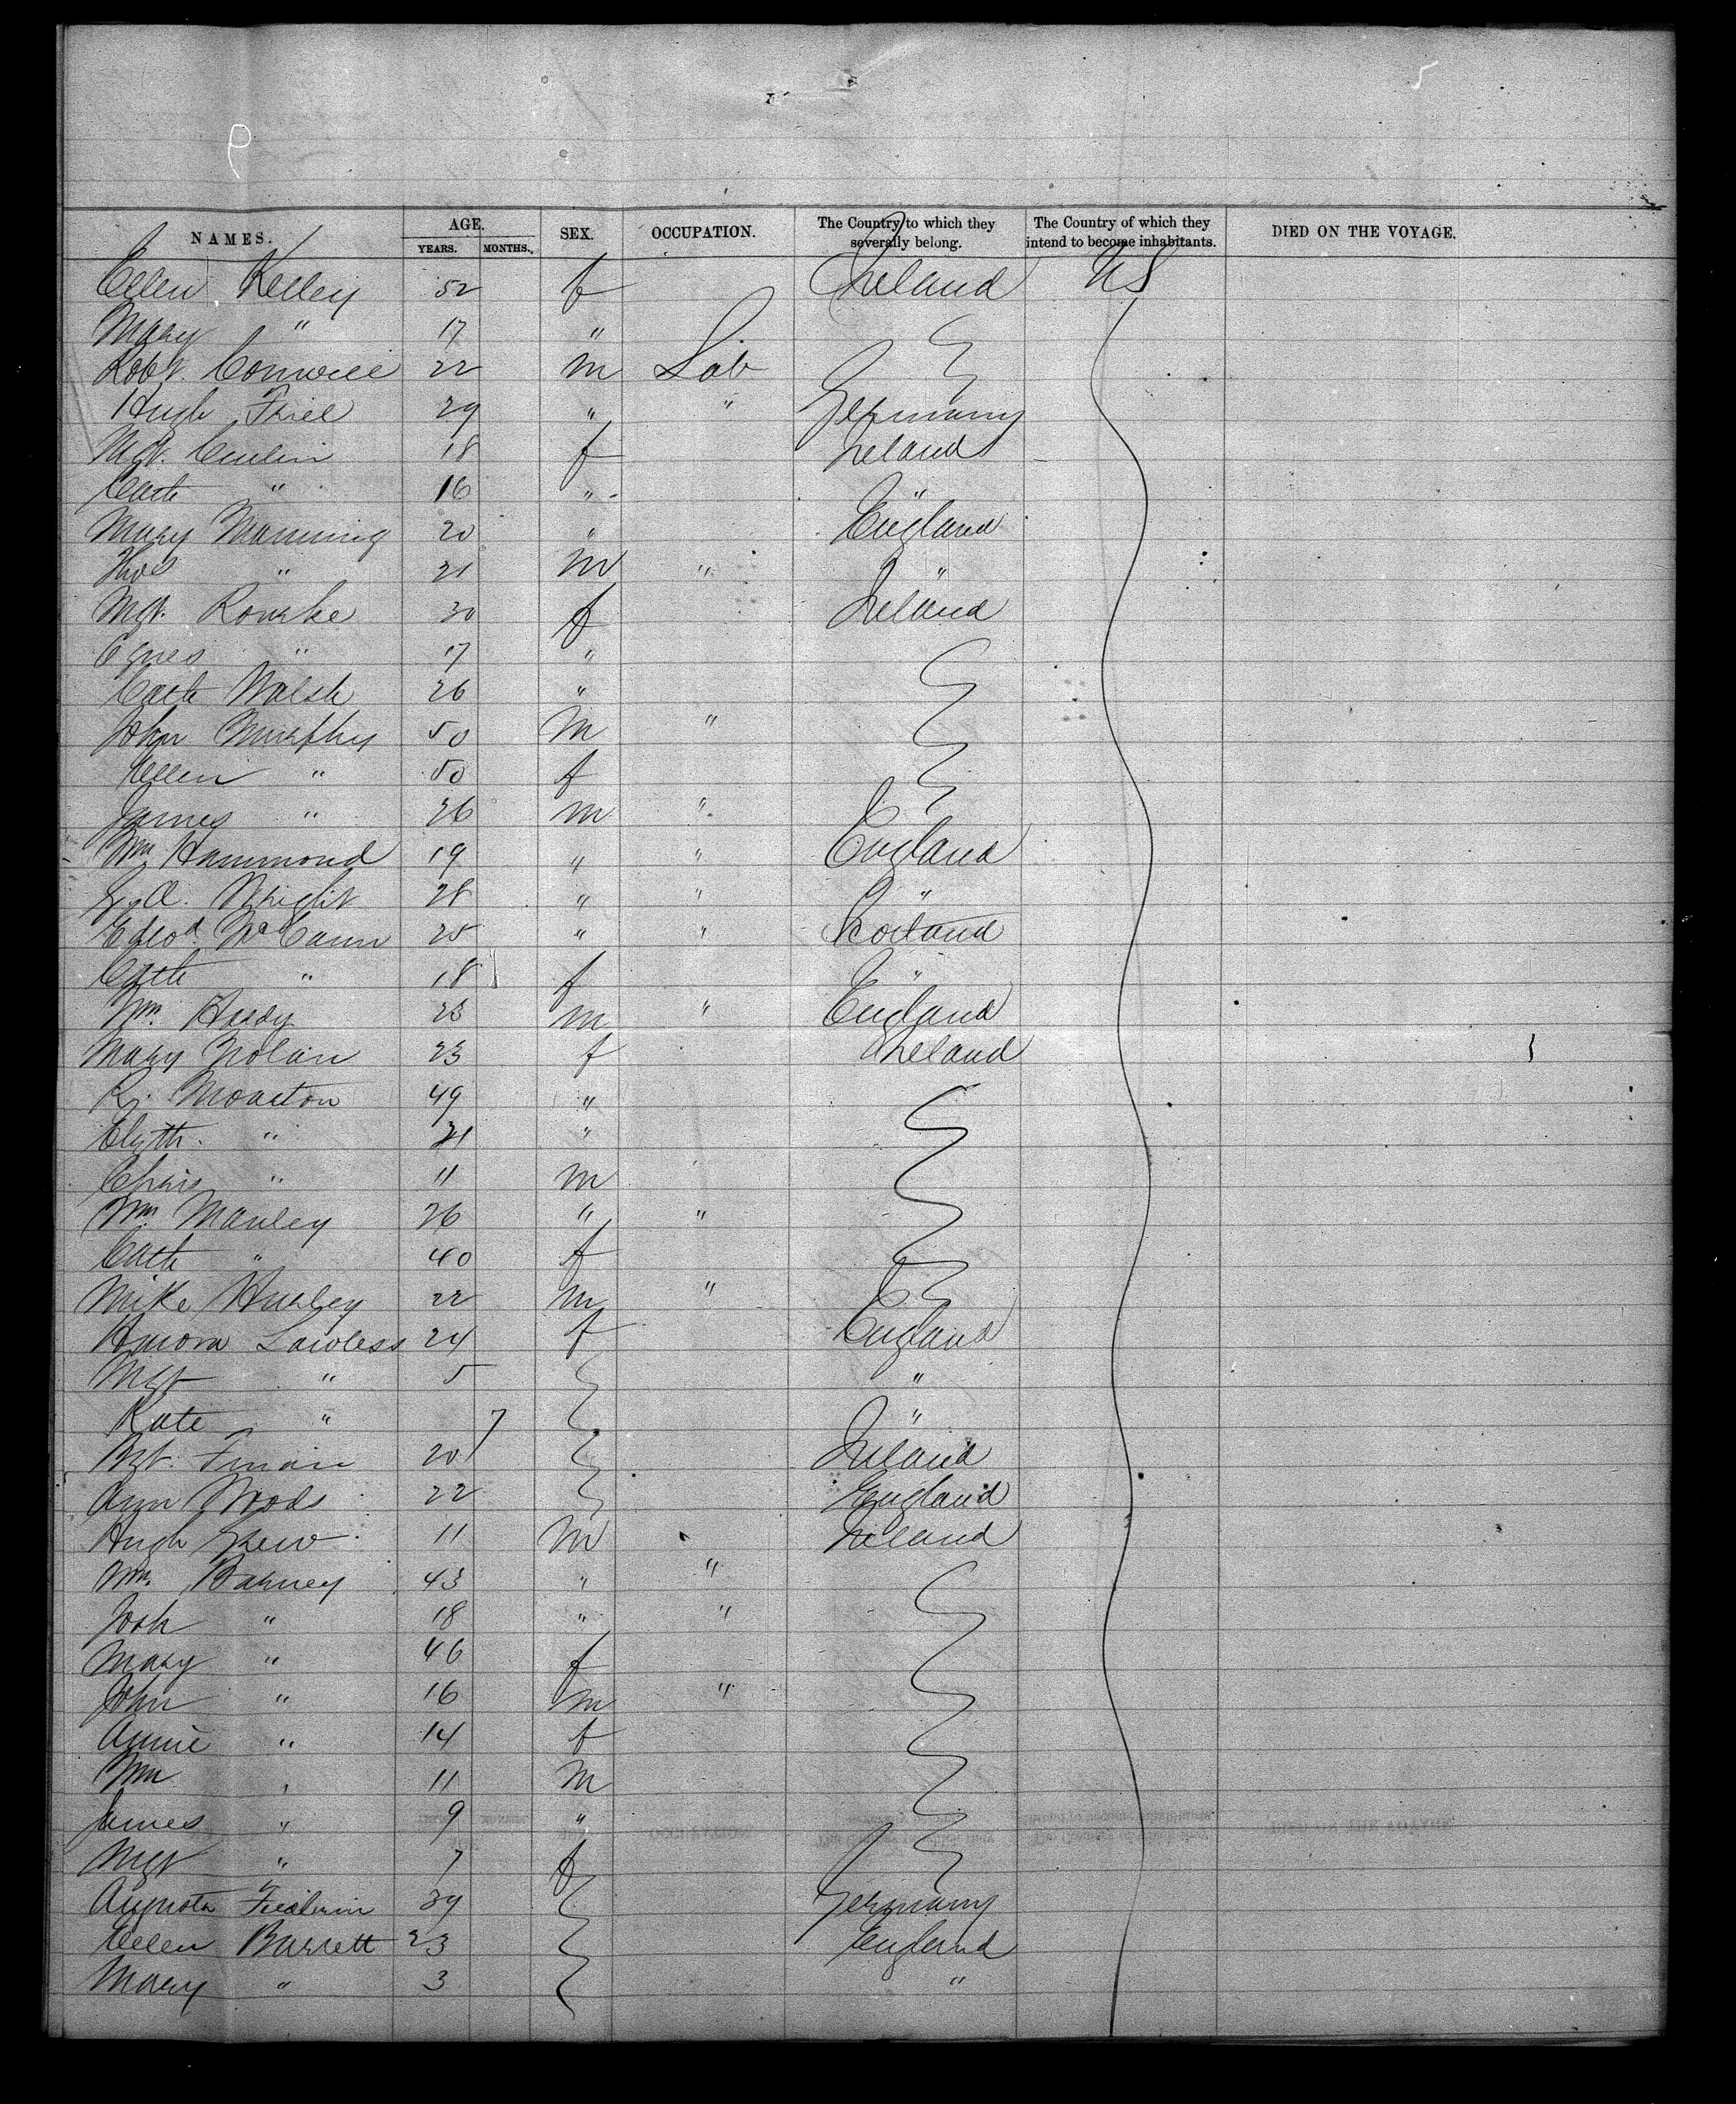 NAMES. AGE. YEARS. MONTHS. SEX. OCCUPATION. The Country to which they severally belong. The Country of which they intend to become inhabitants. DIED ON THE VOYAGE.
Ellen Kelley 52 f Ireland US
Mary " 17 "
Robt. Conwell 22 m Lab
Hugh Friel 29 " " Germany
Mgt. 18 f Ireland
Cath " 16 " "
Mary Manning 20 " England
Thos " 21 m " "
Mgt. Rourke 30 f Ireland
Agnes " 17 "
Cath Walsh 26 "
John Murphy 50 m "
Ellen " 50 f
James " 26 m "
Wm Hammond 19 " " England
A. Wright 28 " " "
Edwd. McCann 25 " " Scotland
Cath " 18 f "
Wm. Hardy 23 m " England
Mary Nolan 23 f Ireland
R. 49 "
Elizth. " 21 "
Chris " 11 m
Wm. Manley 26 " "
Cath " 40 f
Mike Hurley 22 m "
Honora Lawless 24 f England
Mgt " 5 "
Kate " 7 "
20 Ireland
Ann Woods 22 England
Hugh 11 m Ireland
Wm. Barney 43 " "
Josh " 18 " "
Mary " 46 f
John " 16 m "
Annie " 14 f
Wm " 11 m
James " 9 "
Mgt " 7 f
Augusta 39 Germany
Ellen Barrett 23 England
Mary " 3 "